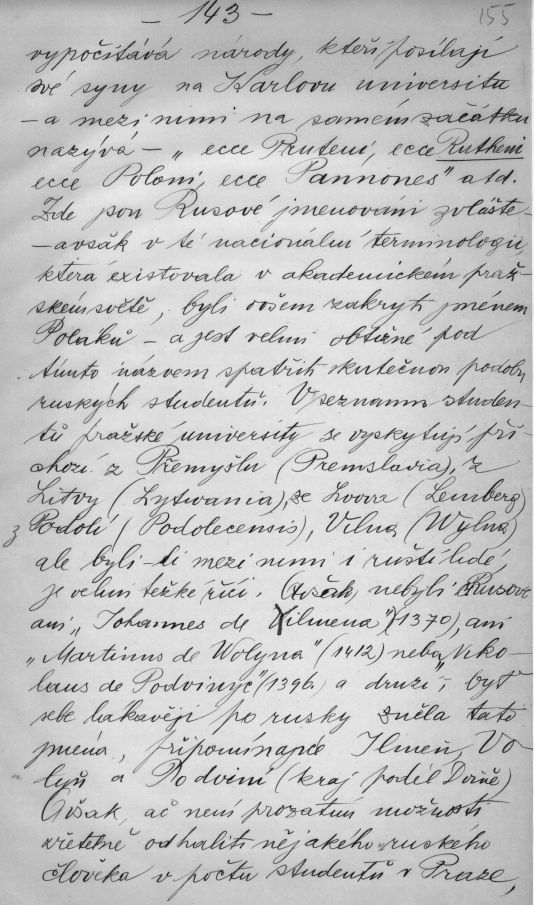 - 143 -
155
vypočítává národy, kteří posílají
své syny na Karlovu universitu
- a mezi nimi na samém začátku
nazývá - „ecce Pruteni, ecce Rutheni
ecce Poloni, ecce Pannones" atd.
Zde jsou Rusové jmenováni zvláště -
- avšak v té nacionální terminologii,
která existovala v akademickém praž-
ském světě, byli ovšem zakryti jménem
Poláků - a jest velmi obtížné pod
tímto názvem spatřiti skutečnou podobu
ruských studentů. V seznamu studen-
tů pražské university se vyskytují pří-
chozí z Přemyšlu (Premslavia), z
Litvy (Lytwania), ze Lvova (Lemberg)
z Podolí (Podolecensis), Vilna (Wylna)
ale byli-li mezi nimi i ruští lidé,
je velmi těžké říci. (Avšak) nebyli Rusové
ani „Johannes de Vilmena" (1370), ani
„Martinus de Wolyna" (1412) neba „Niko-
laus de Podvinye" (1396) a druzí, byť
sebe lákavěji po rusky zněla tato
jména, připomínajíce Ilmeň, Vo-
lyň a Podviní (kraj podél Dviny)
Avšak, ač není prozatím možnosti
zřetelně odhaliti nějakého ruského
člověka v počtu studentů v Praze,